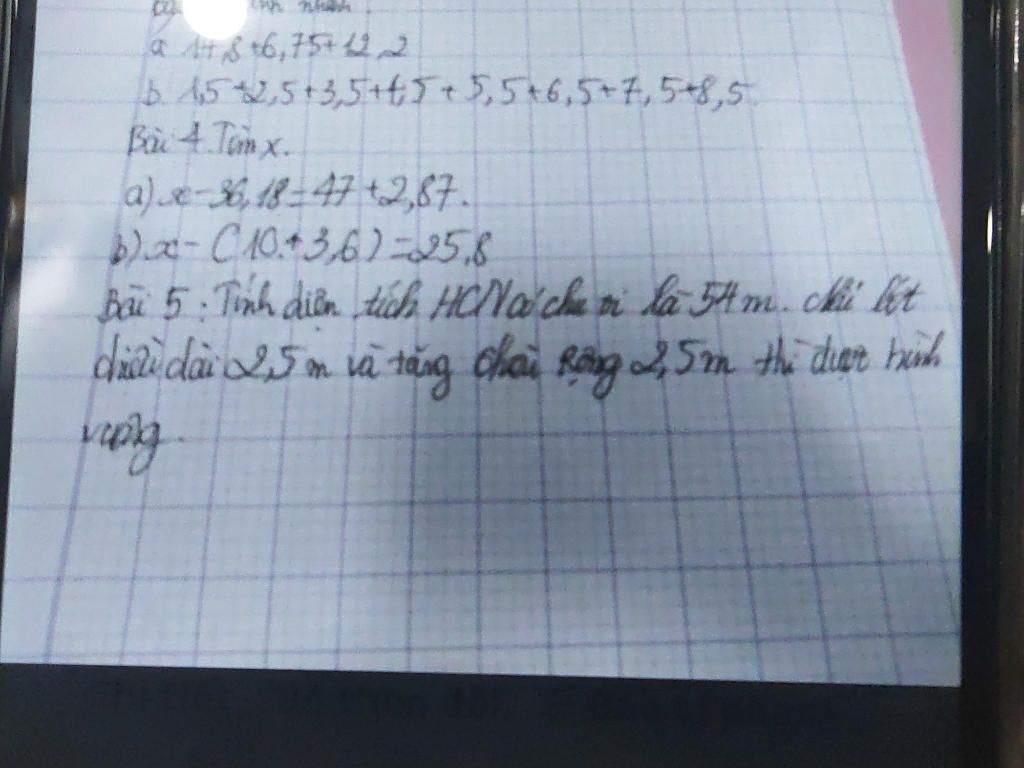 nhanh
a 14,8+6,75+12,2
b. 1,5+2,5+3,5+4,5+5,5+6,5+7,5+8,5
Bài 4. Tìm x.
a) x-36,18=47+2,87.
b) x-(10+3,6)=25,8
Bài 5: Tính diện tích HCN có chu vi là 54m. chi bớt
chiều dài 2,5m và tăng chài Rộng 2,5m thì được hình
vuông.